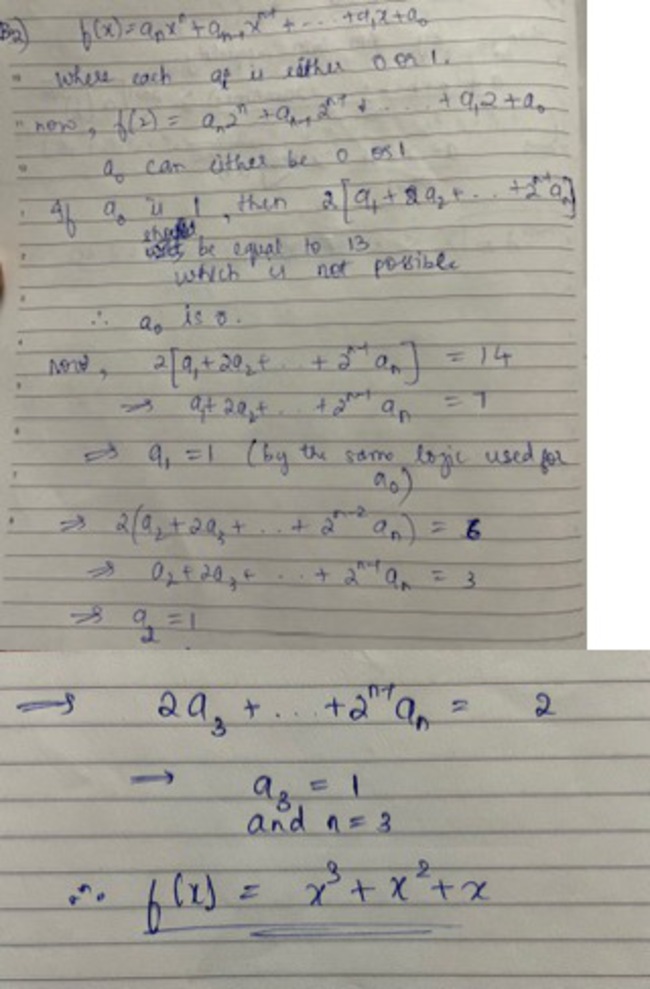 B2) f(x) = aₙxⁿ + aₙ₋₁xⁿ⁻¹ + ... + a₁x + a₀
where each aᵢ is either 0 or 1.
now, f(2) = aₙ2ⁿ + aₙ₋₁2ⁿ⁻¹ + ... + a₁2 + a₀
a₀ can either be 0 or 1
If a₀ is 1, then 2[a₁ + 2a₂ + ... + 2ⁿ⁻¹aₙ]
should be equal to 13
which is not possible
∴ a₀ is 0.
now, 2[a₁ + 2a₂ + ... + 2ⁿ⁻¹ aₙ] = 14
⇒ a₁ + 2a₂ + ... + 2ⁿ⁻¹ aₙ = 7
⇒ a₁ = 1 (by the same logic used for
a₀)
⇒ 2(a₂ + 2a₃ + ... + 2ⁿ⁻² aₙ) = 6
⇒ a₂ + 2a₃ + ... + 2ⁿ⁻¹ aₙ = 3
⇒ a₂ = 1
⇒ 2a₃ + ... + 2ⁿ⁻¹ aₙ = 2
→ a₃ = 1
and n = 3
∴ f(x) = x³ + x² + x